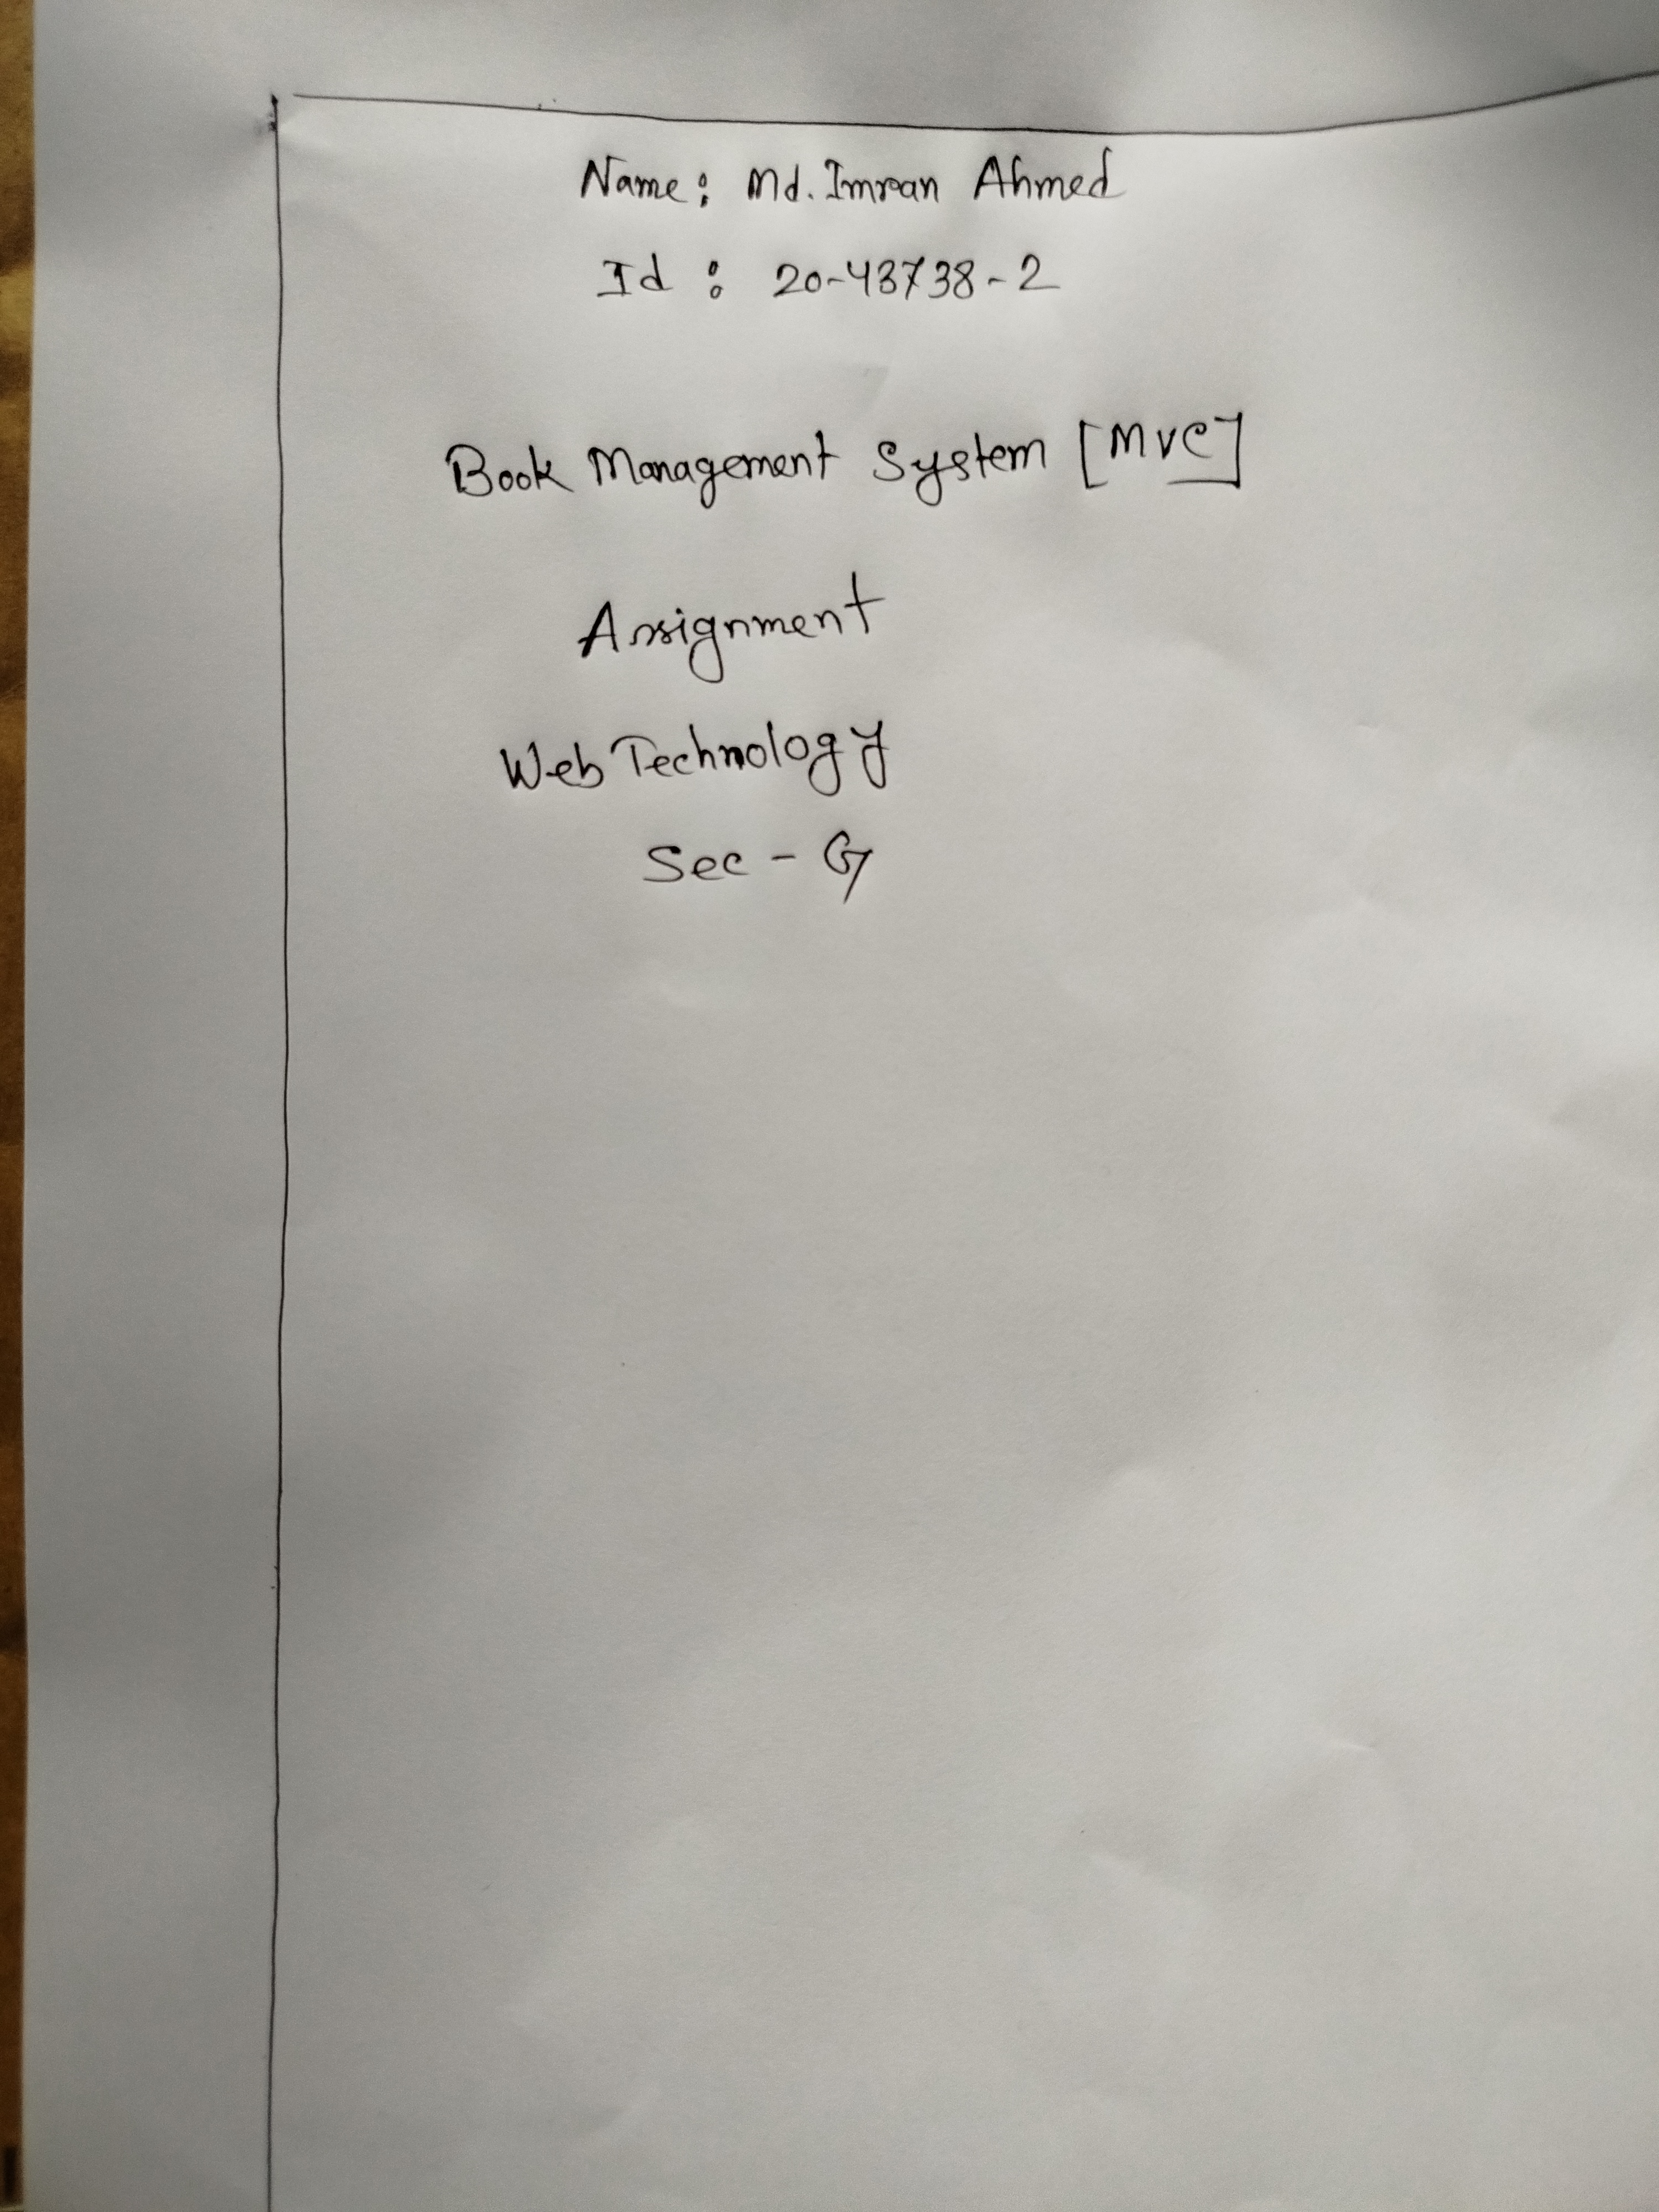 Name: Md. Imran Ahmed
Id : 20-43738-2
Book Management System [MVC]
Assignment
Web Technology
Sec - G